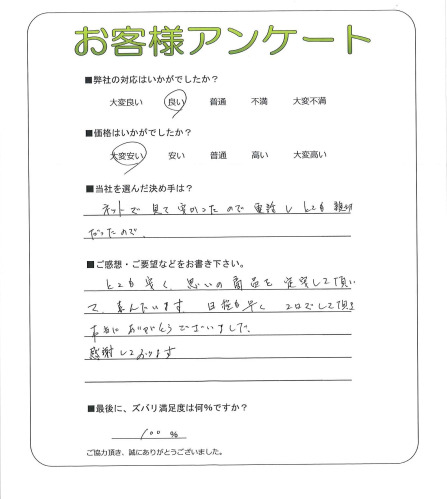 お客様アンケート
■弊社の対応はいかがでしたか？
大変良い 良い 普通 不満 大変不満
■価格はいかがでしたか？
大変安い 安い 普通 高い 大変高い
■当社を選んだ決め手は？
ネットで見て安かったので電話しとても親切
だったので、
■ご感想・ご要望などをお書き下さい。
とても安く、思いの商品を設置して頂い
て、喜んでいます。日程も早く 2日でして頂き
本当にありがとうございました。
感謝しております
■最後に、ズバリ満足度は何％ですか？
100 %
ご協力頂き、誠にありがとうございました。